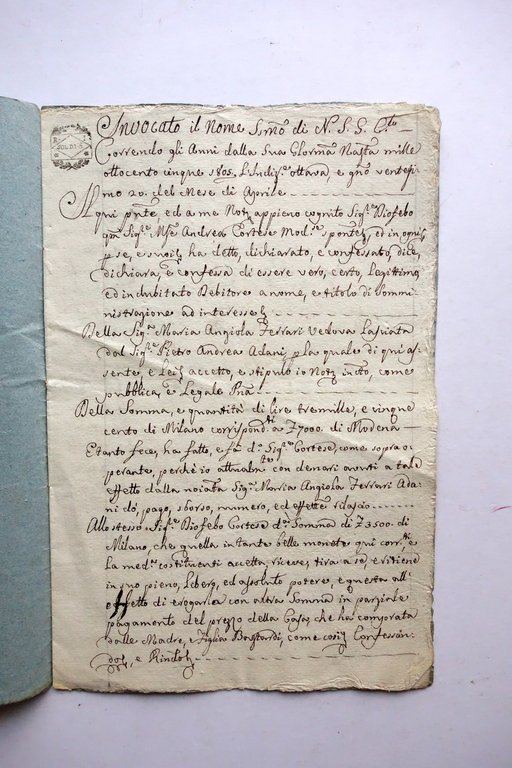 SOLDI 6
Invocato il Nome S.mo di N. S. G. C.to
Correndo gli Anni dalla Sua Glor.ma Nasta mille
ottocento cinque 1805. L'Indiz.e ottava, e gno ventesi-
mo 20. del Mese di Aprile.
Aqui pnte ed a me Not.o appieno cognito Sig.r Diofebo
qm Sig.r Andrea Cortese Mod.se spont.e, ed in ogni
p se, e suoi ha detto, dichiarato, e confessato, dice,
dichiara, e confessa di essere vero, certo, legittimo,
ed indubitato Debitore a nome, e titolo di Sommi-
nistrazione ad interesse
Della Sig.a Maria Angiola Ferrari Vedova Lasciata
dal Sig.r Pietro Andrea Adani, p la quale di qui as-
sente, e Lei accetto, e stipulo io Not.o incto, come
pubblica, e Legale Pna
Della Somma, e quantità di lire tremille, e cinque
cento di Milano corrispond.ti a £7000. di Modena
E tanto fece, ha fatto, e fà d.o Sig.r Cortese come sopra o-
perante, perchè io attualm.te con denari avuti a tale
effetto dalla nominata Sig.a Maria Angiola Ferrari Ada-
ni do, pago, sborso, numero, ed effettte rilascio
Allo stesso Sig.r Diofebo Cortese d.a Somma di £3500. di
Milano, che quella in tante belle monete qui corr.ti e
la med.a costituenti accetta, riceve, tira a se, e ritiene
in suo pieno, libero, ed assoluto potere, e questa all'
effetto di erogarla con altra Somma in parziale
pagamento del prezzo della Casa, che ha comprata
dalle Madre, e Figlia Bastardi, come così Confessan-
do, e Rindo